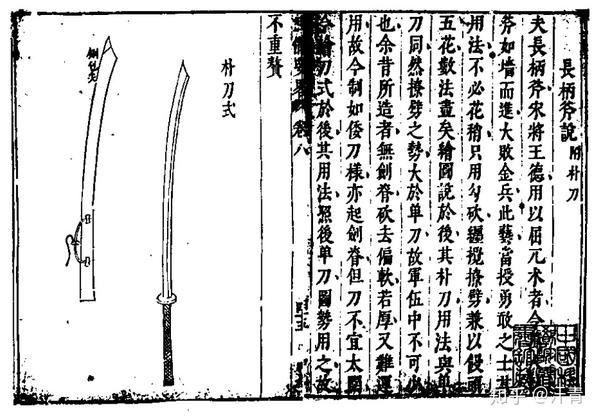 長柄斧說 附朴刀
夫長柄斧宋將王德用以屈兀术者今
斧如墻而進大敗金兵此藝當授勇敢之士其
用法不必花稍只用勾砍纏攪撩劈兼以
五花數法盡矣繪圖說於後其朴刀用法與單
刀同然撩劈之勢大於单刀故軍伍中不可少
也余昔所造者無劍脊砍去偏軟若厚又難運
用故今制如倭刀樣亦起劍脊但刀不宜太闊
今繪刀式於後其用法照後单刀圖勢用之故
卷八
四十五
不重贅
朴刀式
知乎 @汗青